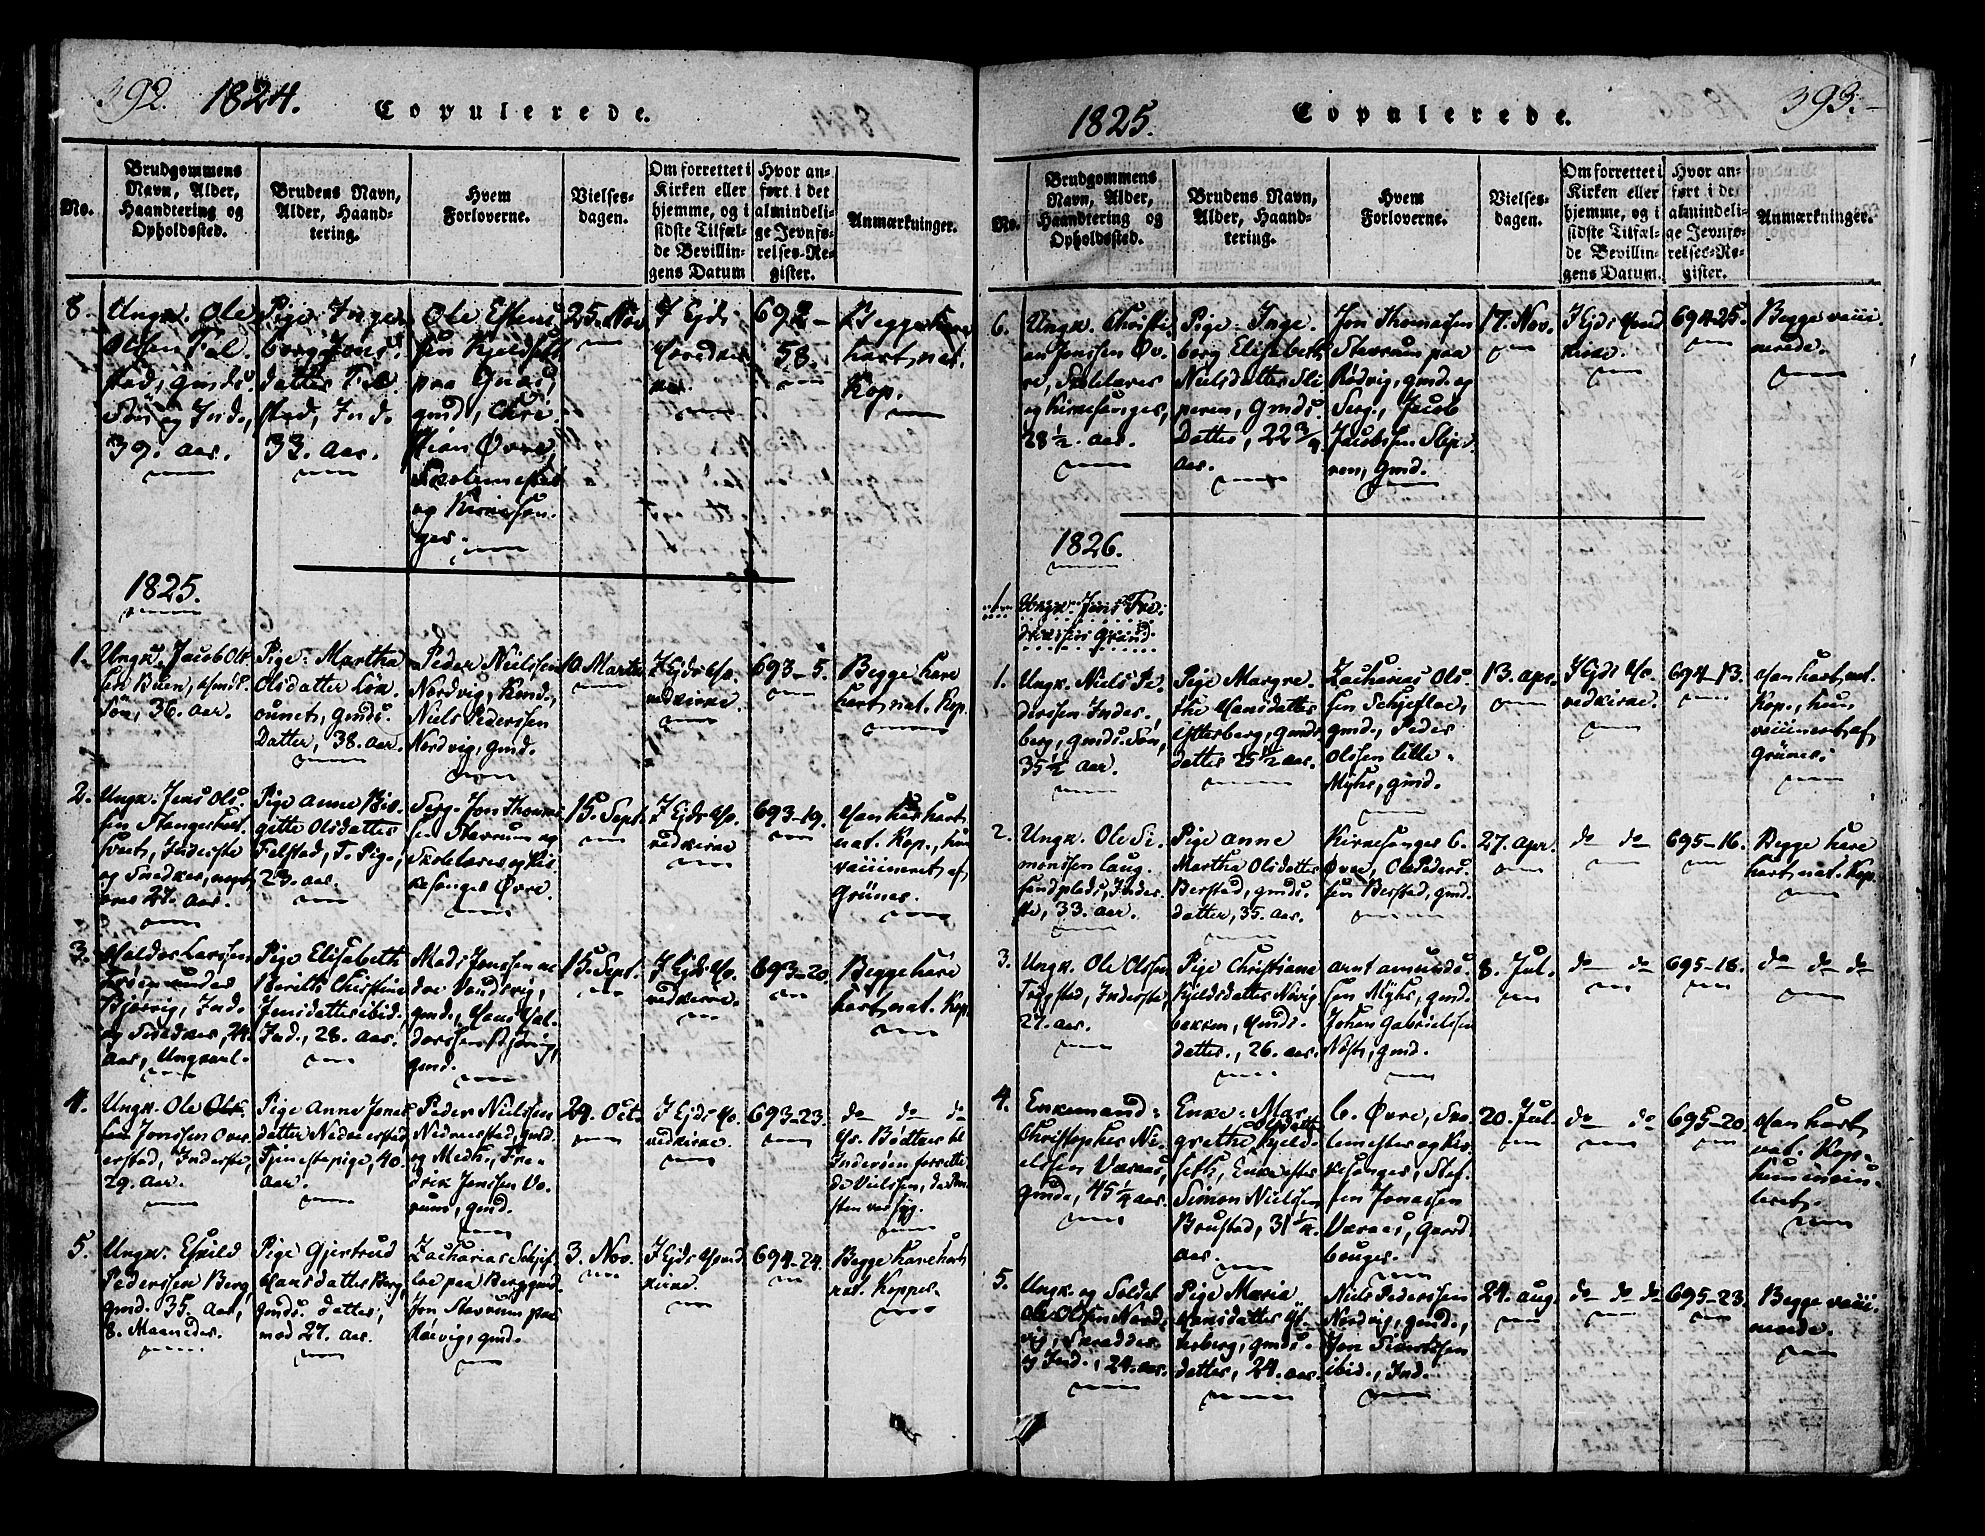 392. 1824. Copulerede.
No.
Brudgommens
Navn, Alder,
Haandtering og
Opholdssted.
Brudens Navn,
Alder, Haand-
tering.
Hvem
Forloverne.
Vielses-
dagen.
Om forrettet i
Kirken eller
hjemme, og i
sidste Tilfæl-
de Bevillin-
gens Datum
Hvor an-
ført i det
almindeli-
ge Jevnfø-
relses-Re-
gister.
Anmærkninger.
8.
Ungk. Ole
Olssen Fal-
stad, gmds
Søn og Ind.,
39. aar.
Pige Inge-
borg Jons
datter Fal
stad, Ind.
33. aar.
Ole Estens
sen Kjeldset
paa
gmd, Chri
stian Øvre,
Skolemester
og Kirkesan-
ger.
25. Nov.
I Ejds
Hovedkir
ke.
692-
58.
Begge have
havt nat.
Kop.
1825.
1.
Ungk. Jacob Ols
sen Buen, Gmds.
Søn, 36. aar.
Pige Martha
Olsdatter Løk
aunet, gmds.
Datter, 38. aar.
Peder Nielssen
Nordvig, Gmd.,
Niels Pederssen
Nordvig, gmd.
10. Martii
I Ejds Ho-
vedkirke.
693-5.
Begge have
havt nat. Kop.
2.
Ungk. Jens Ols
sen
og Snedker,
27. aar.
Pige Anne Bir
gitte Olsdatter
Falstad, T. Pige,
23. aar.
Serg. Jon Thomes
sen Stavrum og
Skolelærer og Kir
kesanger Øvre.
15. Sept.
I Ejds Ho-
vedkirke
693-19.
Han har havt
nat. Kop., hun
vaccineret af
Grüner.
3.
Halder Larssen
Bjørvig, Ind.
24.
aar, Ungkarl.
Pige Elisabeth
Berith Christine
Jensdatter ibid.
Ind., 28. aar.
Mads Jenssen ne
dre Sundvig,
gmd., Hans Hal
dorssen Bjørvig,
gmd.
15. Sept.
I Ejds Ho-
vedkirke.
693-20
Begge have
havt nat. Kop.
4.
Ungk. Ole
Jonssen Over
erstad, Inderste,
29. aar.
Pige Anne Jons
datter Nedreerstad
Tjenestepige, 40.
aar.
Peder Nielssen
Nedreerstad, gmd.
og Medhj., Fre-
drik Jenssen Vo-
rum, gmd.
29. Oct.
I Ejds Ho-
vedkirke.
693-23.
do do do
Hr. Bødtker til
Inderøen forrette
de Vielsen, da Præ
sten var syg.
5.
Ungk. Eskild
Pederssen Berg,
gmd. 35. aar,
8. Maaneder.
Pige Gjertrud
Hansdatter Berg,
gmds. datter,
med 27. aar.
Zacharias Schjef
loe paa Berg, gmd.
Jon Stavrum paa
Rødvig, gmd.
3. Nov.
I Ejds Hoved
kirke.
694-24.
Begge have havt
nat. Kopper.
1825. Copulerede. 393.
No.
Brudgommens
Navn, Alder,
Haandtering og
Opholdssted.
Brudens Navn,
Alder, Haand-
tering.
Hvem
Forloverne.
Vielses-
dagen.
Om forrettet i
Kirken eller
hjemme, og i
sidste Tilfæl-
de Bevillin-
gens Datum.
Hvor an-
ført i det
almindeli-
ge Jevnfø-
relses-Re-
gister.
Anmærkninger.
6.
Ungk. Christi
an Jonssen Øv-
re, Skolelærer
og Kirkesanger,
28 1/2 aar.
Pige Inge-
borg Elisabeth
Nielsdatter Sli
peren, Gmds.
Datter, 22 3/4
aar.
Jon Thomessen
Stavrum paa
Rødvig, gmd. og
Serg., Jacob
Jacobssen Slipe
ren, gmd.
17. Nov.
I Ejds Hoved
kirke.
694-25.
Begge vacci-
nerede.
1826.
1.
Ungk. Jens Fre-
drikssen Grund.
1.
Ungk. Niels Pe-
derssen Inder-
berg, gmds. Søn,
35 1/2 aar.
Pige Margre-
the Hansdatter
Ytterberg, gmds.
datter 25 1/2 aar.
Zacharias Ols
sen Schjefloe,
gmd., Peder
Olssen lille
Myhr, gmd.
13. apr.
I Ejds Ho-
vedkirke.
694-13.
Han havt nat.
Kop., hun
vaccineret af
Grüner.
2.
Ungk. Ole Si-
monssen Laug-
sandplads, Inder
ste, 33. aar.
Pige Anne
Martha Olsdatter
Berstad, gmds.
datter, 35. aar.
Kirkesanger C.
Øvre, Ole Peders
sen Berstad, gmd.
27. apr.
do do
695-16.
Begge have
havt nat. Kop.
3.
Ungk. Ole Olssen
Trøgstad, Inderste,
27. aar.
Pige Christiane
Kjeldsdatter Norvig
bakken, Gmds.
datter, 26. aar.
Arnt Amunds
sen Myhr, gmd.
Johan Gabrielssen
Næst, gmd.
8. Jul.
do do
695-18.
do do do
4.
Enkemand
Christopher Ni-
elssen Værnes,
gmd., 45 1/4 aar.
Enke Mar-
grethe Olsdatter Kjeld-
seth, Enke efter
Simon Nielssen
Brustad, 31 1/2
aar.
C. Øvre, Sko
lemester og Kir-
kesanger, Stef-
fen Jonassen
Værnes, gaard-
bruger.
20. Jul.
do do
695-20.
Han havt
nat. Kop-
hun inocu-
leret.
5.
Ungk. og Soldat
Ole Olssen Nord-
vig, Skrædder
og Ind., 24. aar.
Pige Maria
Hansdatter Yt-
terberg, gmds.
datter, 24. aar.
Niels Pederssen
Nordvig, gmd.,
Jon Sivertssen
ibid., Ind.
24. aug.
do do do
695-23.
Begge vacci-
nerede.